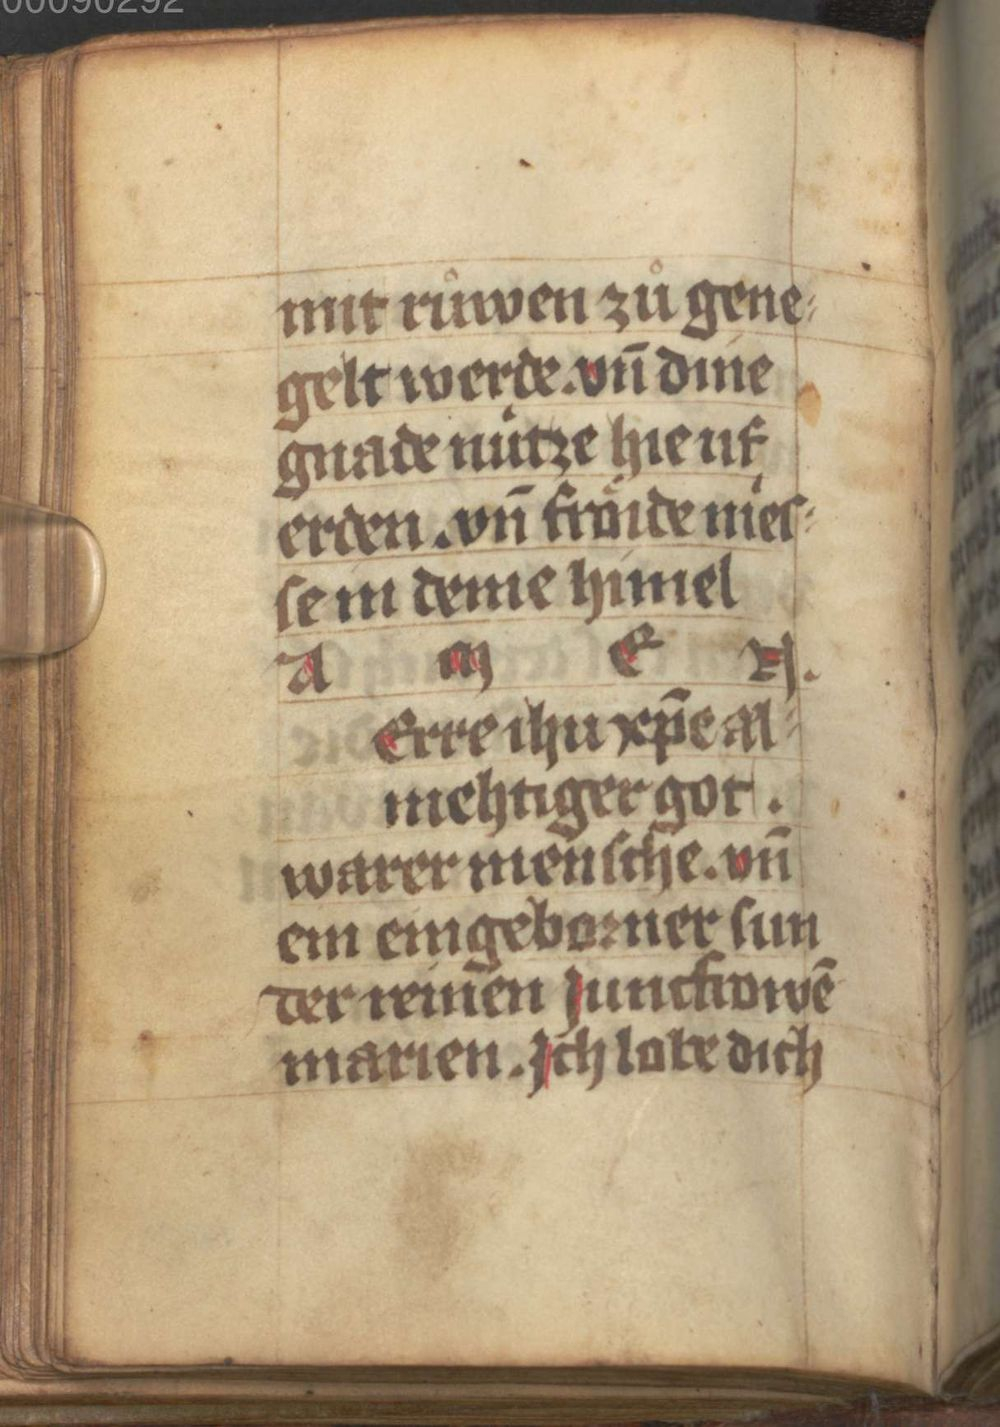 00090292
mit růwen zů gene⸗
gelt werde. vn̄ dine
gnade nútze hie uf
erden. vn̄ frőide nies⸗
se in deme himel
A M E N.
Erre ihu xp̄e al⸗
mehtiger got.
warer mensche. vn̄
ein eingeborner sun
der reinen Junckfrowē
marien. Ich lobe dich